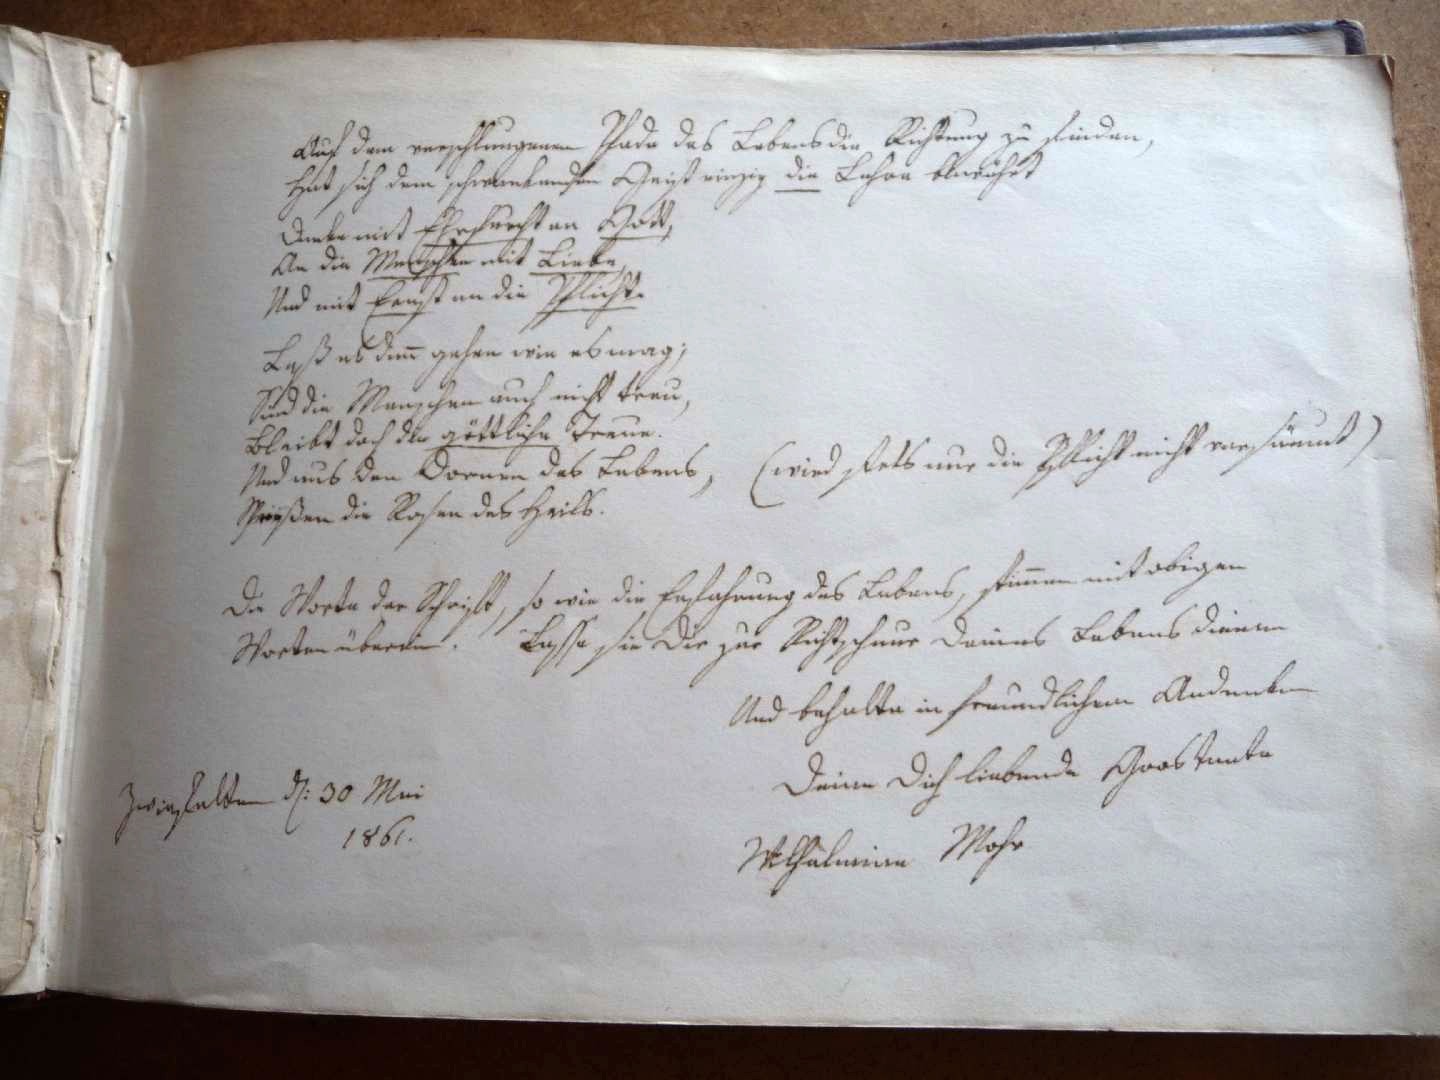 Auf dem verschlungenen Pfade des Lebens die Richtung zu finden,
Hat sich dem schwankenden Geist einzig die Lehre bewährt
Denke mit Ehrfurcht an Gott,
An die Menschen mit Liebe,
Und mit Ernst an die Pflicht.
Laß es dann gehen wie es mag;
Sind die Menschen auch nicht treu,
Bleibt doch die göttliche Treue.
Und aus den Dornen des Lebens, (wird stets nur die Pflicht nicht versäumt)
Sprießen die Rosen des Heils.
Die Worte der Schrift, so wie die Erfahrung des Lebens, stimmen mit obigen
Worten überein. Lasse sie Dir zur Richtschnur Deines Lebens dienen
Und behalte in freundlichem Andenken
Deine Dich liebende Großtante
Zwiefalten d: 30 Mai
1861.
Wilhelmine Mohr